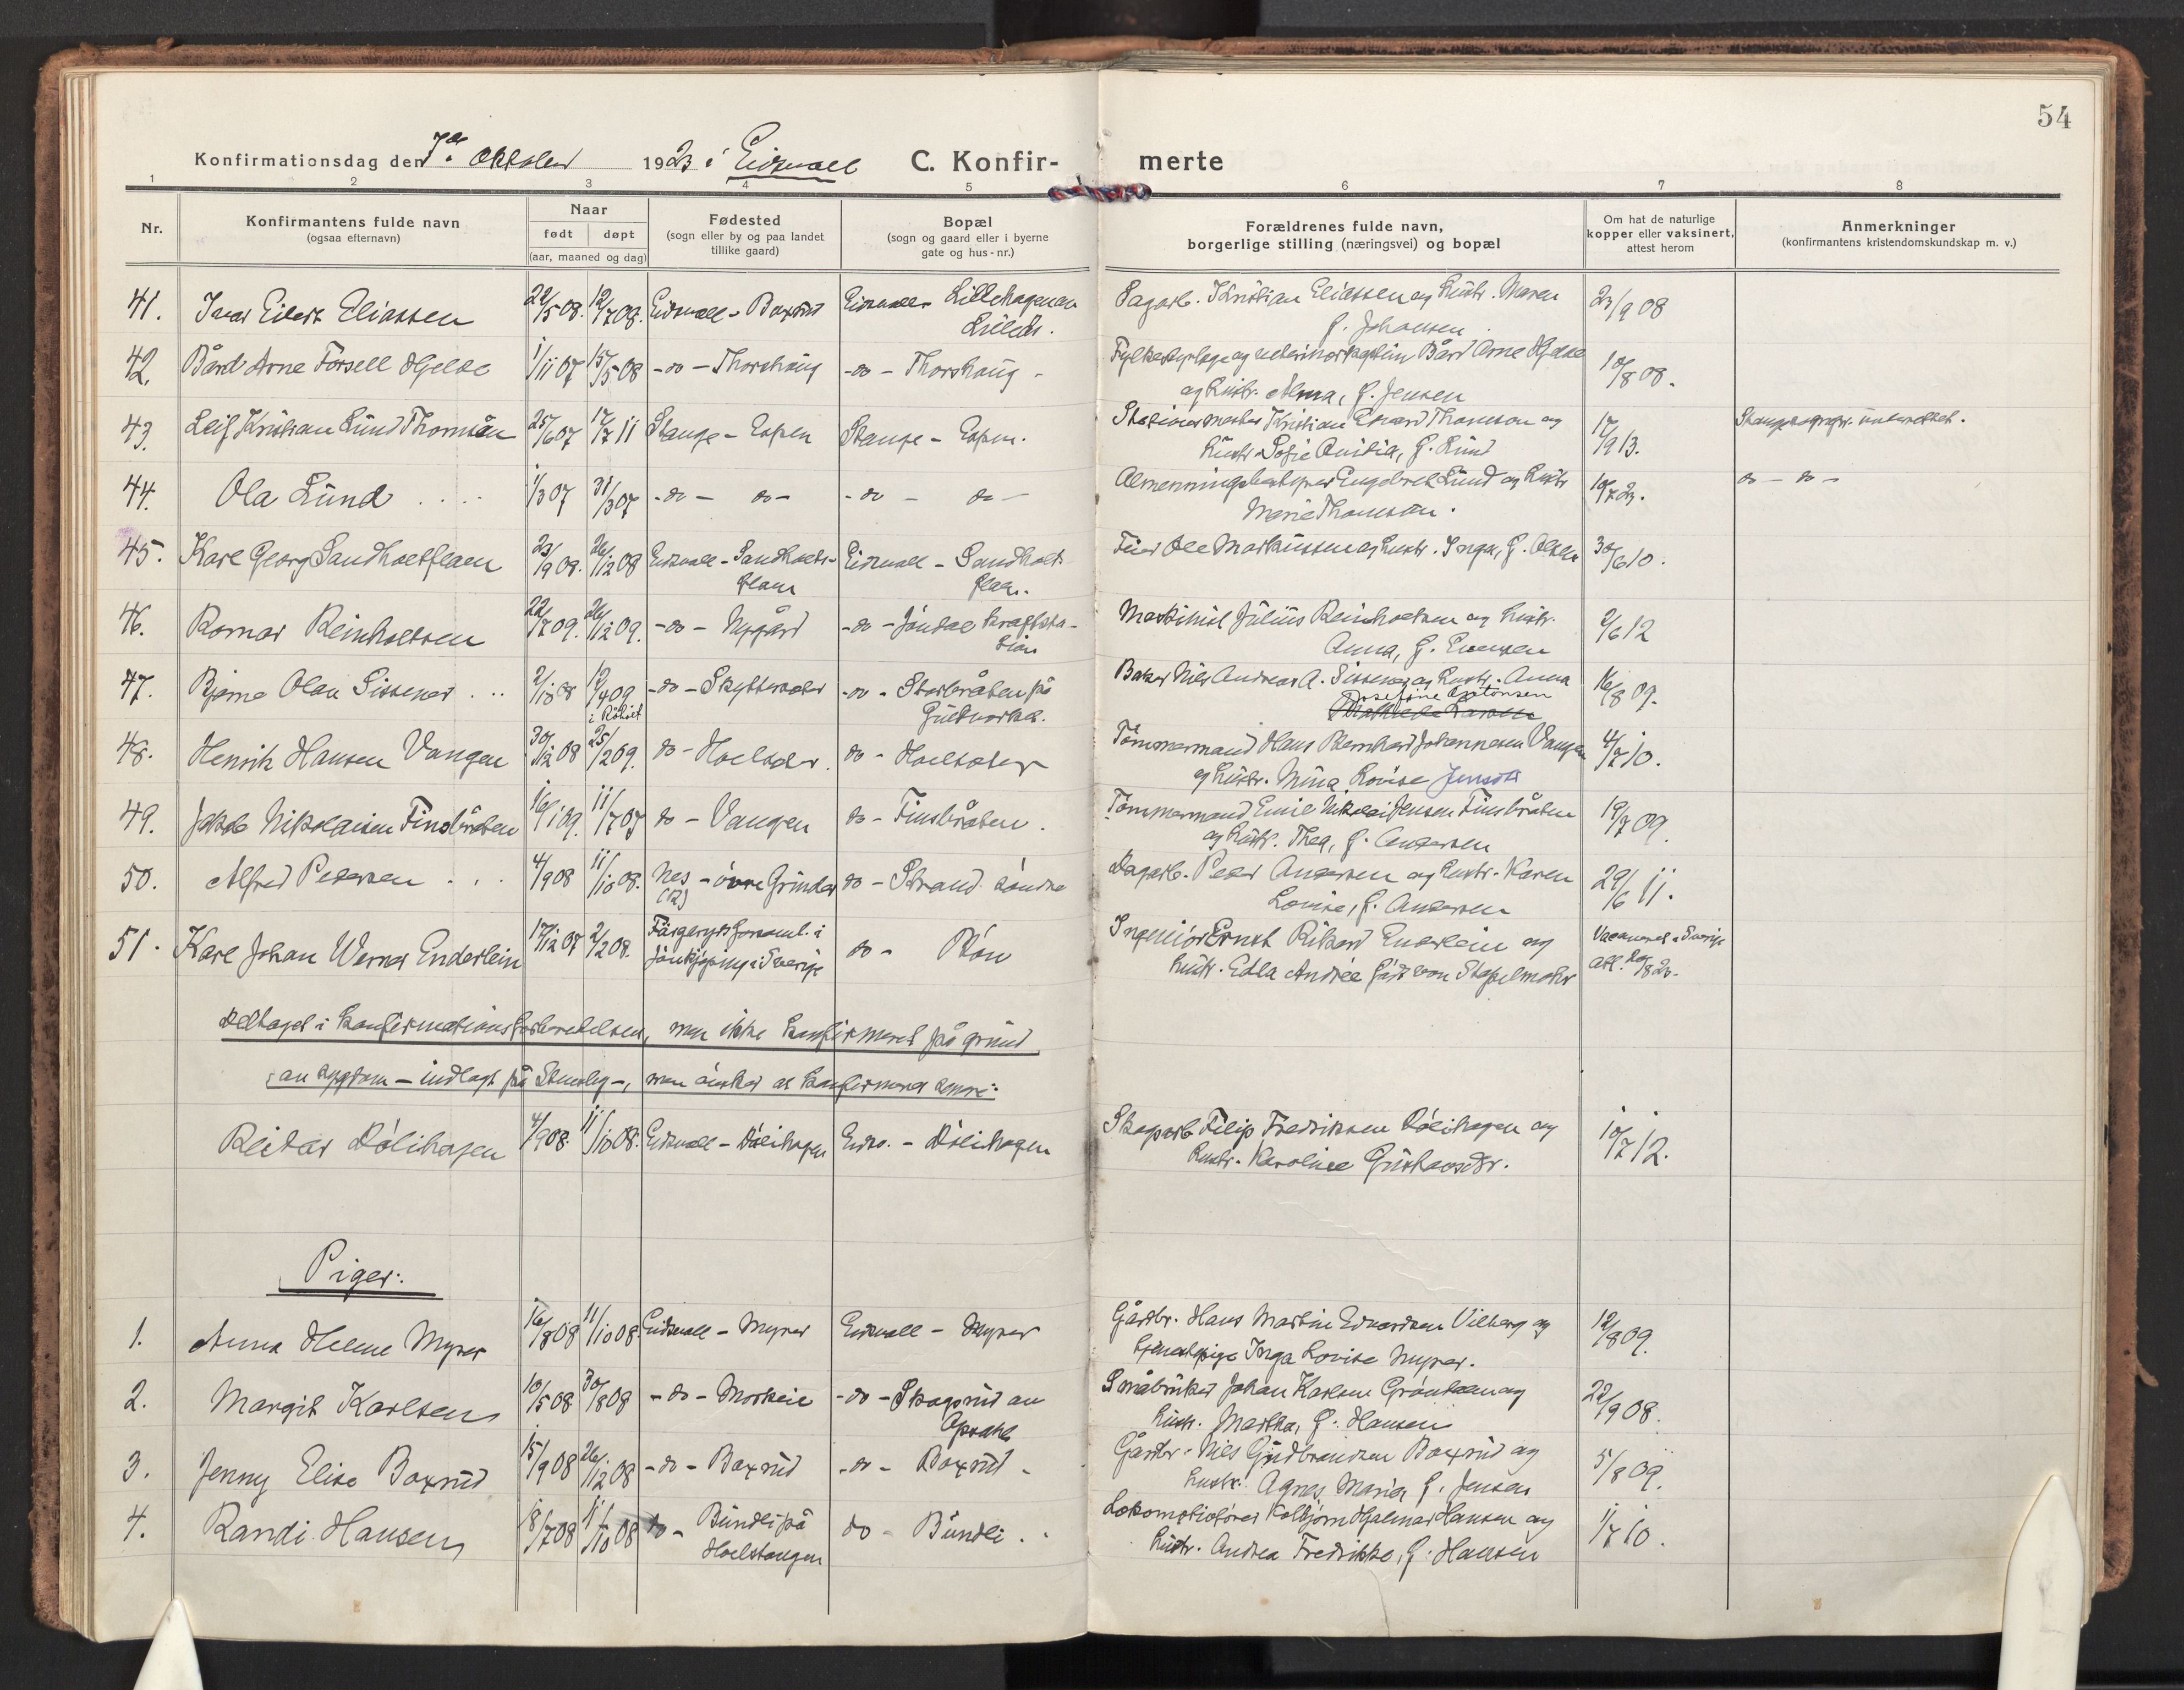 54
Konfirmationsdag den 7de oktober 1923 i Eidsvoll C. Konfir- merte
1 2 3 4 5 6 7 8
Nr.
Konfirmantens fulde navn
(ogsaa efternavn)
Naar
født døpt
(aar, maaned og dag)
Fødested
(sogn eller by og paa landet
tillike gaard)
Bopæl
(sogn og gaard eller i byerne
gate og hus-nr.)
Forældrenes fulde navn,
borgerlige stilling (næringsvei) og bopæl
Om hat de naturlige
kopper eller vaksinert,
attest herom
Anmerkninger
(konfirmantens kristendomskundskap m. v.)
41. Ivar Eilert Eliassen 22/5 08. 12/7 08. Eidsvoll - Boxrud Eidsvoll - Lillehagen av
Sagarb. Kristian Eliassen og hustr. Maren
f. Johansen 23/9 08
42. Bård Arne Forsell Hjelde 1/11 07 15/5 08 -do- Thorshaug -do- Thorshaug -
Bård Arne Hjelde
og hustr. Alma, f. Jensen 10/8 08.
43. Leif Kristian Lund Thomsön 25/6 07 17/7 11 Stange - Espen Stange - Espen.
Stationsmester Kristian Edvard Thomson og
hustr. Sofie f. Lund 17/9 13.
44. Ola Lund 1/3 07 31/3 07 -do- do- -do- do-
Almenningsbestyrer Engebret Lund og hustr.
Marie Thomson. 10/7 23. do - do -
45. Karl Georg Sandholtflaen 23/9 08. 26/12 08 Eidsvoll - Sandholt-
flaen
Eidsvoll - Sandholt
flaen.
Feier Ole Markussen og hustr. Inga, f. Olsen 30/6 10.
46. Romar Reinholtsen 22/7 09. 26/12 09. -do- Nygård -do- Jöndal kraftsta-
sion
Maskinist Julius Reinholtsen og hustr.
Anna, f. Evensen 2/6 12
47. Bjarne Olav Sissener 2/10 08 12/4 09 -do- Skytterseter -do- Storbråten på
Gullverket.
Baker Nils Andreas A. Sissener og hustr. Anna
Josefine Antonsen
Mathilde Larsen 16/8 09.
48. Henrik Hansen Vangen 30/12 08 25/2 09. do - Hoelseter. do - Hoelseter
Tömmermand Hans Bernhard Johannesen Vangen
og hustr. Mina Lovise Jensdtr 4/7 10.
49. Jakob Nikolaisen Finsbråten 16/1 09. 11/7 09 do - Vangen do - Finsbråten.
Tömmermand Emil Nikolai Jensen Finsbråten
og hustr. Thea, f. Andersen 19/7 09.
50. Alfred Pedersen 4/9 08 11/10 08. Nes - övre Grinder do - Strand söndre
(R)
Dagarb. Peder Andersen og hustr. Karen
Lovise, f. Andersen 29/6 11.
51. Karl Johan Werner Enderlein 17/12 07 2/2 08. Färgeryds forsaml. i
Jönkjöping i Sverige
do - Rön
Ingeniör Ernst Rikard Enderlein og
hustr. Edla Andrée född von Stapelmohr
Vaccineret i Sverige
att. 20/8 23.
Deltaget i konfirmationsforberedelsen, men ikke konfirmeret på grund
av sygdom - indlagt på Stensby -, men önsker at konfirmeres senere:
Reidar Dölihagen 4/9 08. 11/10 08. Eidsvoll - Dölihagen Eidsv. - Dölihagen
Skogarb. Filip Fredriksen Dölihagen og
hustr. Karoline Gustavsdtr. 10/7 12.
Piger:
1. Anna Helene Myrer 16/8 08 11/10 08. Eidsvoll - Myrer Eidsvoll - Myrer
Gårdbr. Hans Martin Edvardsen Vilberg og
tjenestpige Inga Lovise Myrer. 12/8 09.
2. Margit Karlsen 10/5 08 30/8 08 -do- Morkeie -do- Skogsrud av
Opsahl
Småbruker Johan Karlsen Gröndalen og
hustr. Martha, f. Hansen 22/9 08.
3. Jenny Elise Boxrud 15/9 08 26/12 08 -do- Boxrud -do- Boxrud -
Gårdbr. Nils Gudbrandsen Boxrud og
hustr. Agnes Marie, f. Jensen 5/8 09.
4. Randi Hansen 18/7 08 11/10 08 do - Bundli på
Hoelstangen
do - Bundli.
Lokomotivförer Kolbjörn Hjalmar Hansen og
hustr. Andrea Fredrikke, f. Hansen 1/7 10.